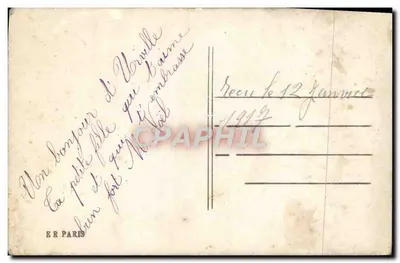 Un bonjour d'Urville
Ta petite fille que t'aime
et qui t'embrasse
bien fort.
Recu le 12 Janvier
1917
CPHARTIPH
E R PARIS